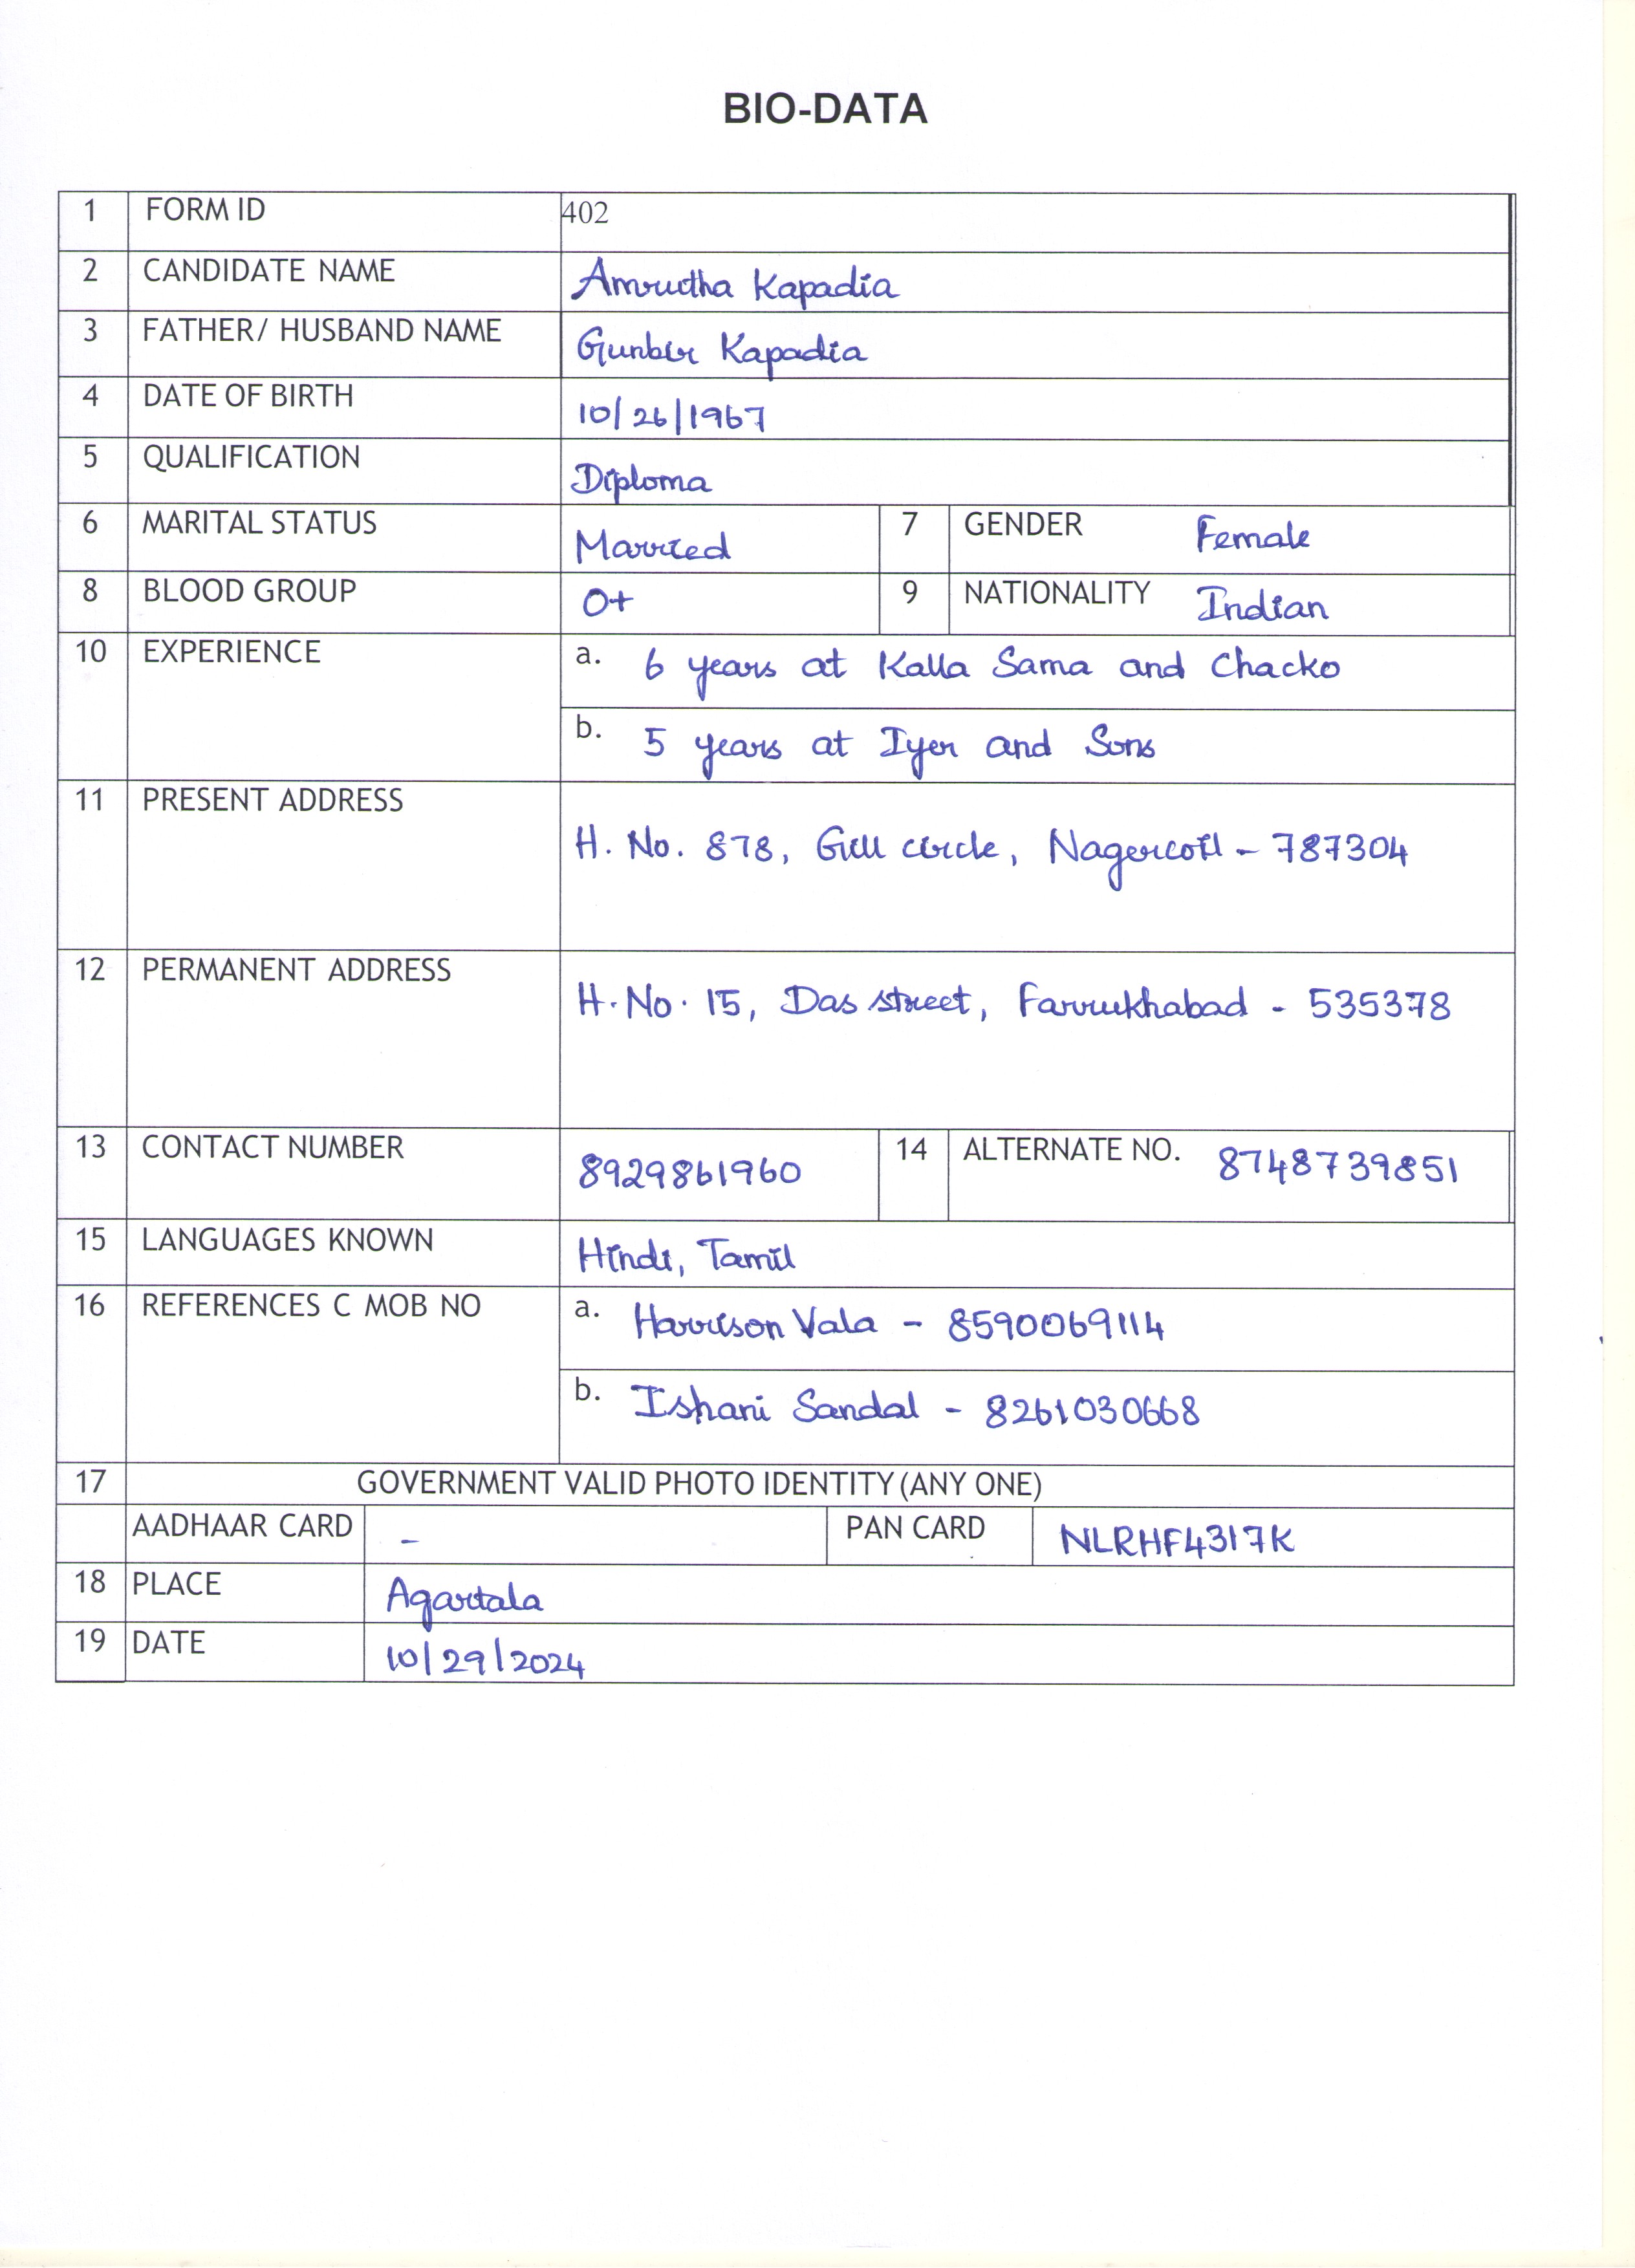 BIO-DATA
1 FORM ID 402
2 CANDIDATE NAME Amrutha Kapadia
3 FATHER/ HUSBAND NAME Gunbir Kapadia
4 DATE OF BIRTH 10/26/1967
5 QUALIFICATION Diploma
6 MARITAL STATUS Married 7 GENDER Female
8 BLOOD GROUP O+ 9 NATIONALITY Indian
10 EXPERIENCE a. 6 years at Kalla Sama and Chacko
b. 5 years at Iyer and Sons
11 PRESENT ADDRESS
H. No. 878, Gill circle, Nagercoil - 787304
12 PERMANENT ADDRESS
H. No. 15, Das street, Farrukhabad - 535378
13 CONTACT NUMBER 8929861960 14 ALTERNATE NO. 8748739851
15 LANGUAGES KNOWN Hindi, Tamil
16 REFERENCES C MOB NO a. Harrison Vala - 8590069114
b. Ishani Sandal - 8261030668
17 GOVERNMENT VALID PHOTO IDENTITY (ANY ONE)
AADHAAR CARD - PAN CARD NLRHF4317K
18 PLACE Agartala
19 DATE 10/29/2024